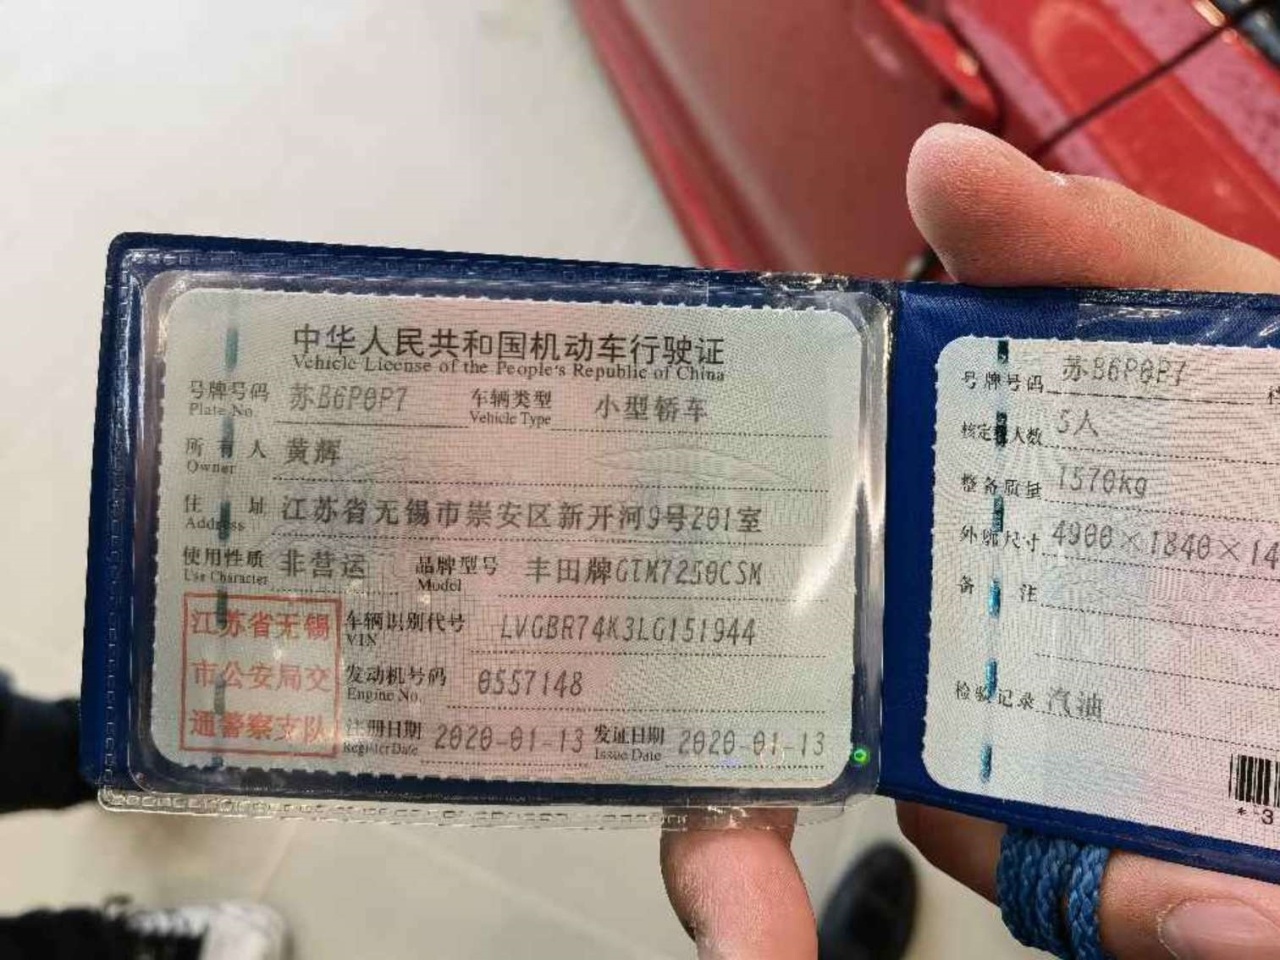 中华人民共和国机动车行驶证
Vehicle License of the People's Republic of China
号牌号码 苏B6P0P7 车辆类型 小型轿车
Plate No. Vehicle Type
所有人 黄辉
Owner
住址 江苏省无锡市崇安区新开河9号201室
Address
使用性质 非营运 品牌型号 丰田牌GTM7250CSM
Use Character Model
江苏省无锡
市公安局交
通警察支队
车辆识别代号 LVGBR74K3LG151944
VIN
发动机号码 0557148
Engine No.
注册日期 2020-01-13 发证日期 2020-01-13
Register Date Issue Date
号牌号码 苏B6P0P7
核定载人数 5人
整备质量 1570kg
外廓尺寸 4900×1840×14
备注
检验记录 汽油
*3